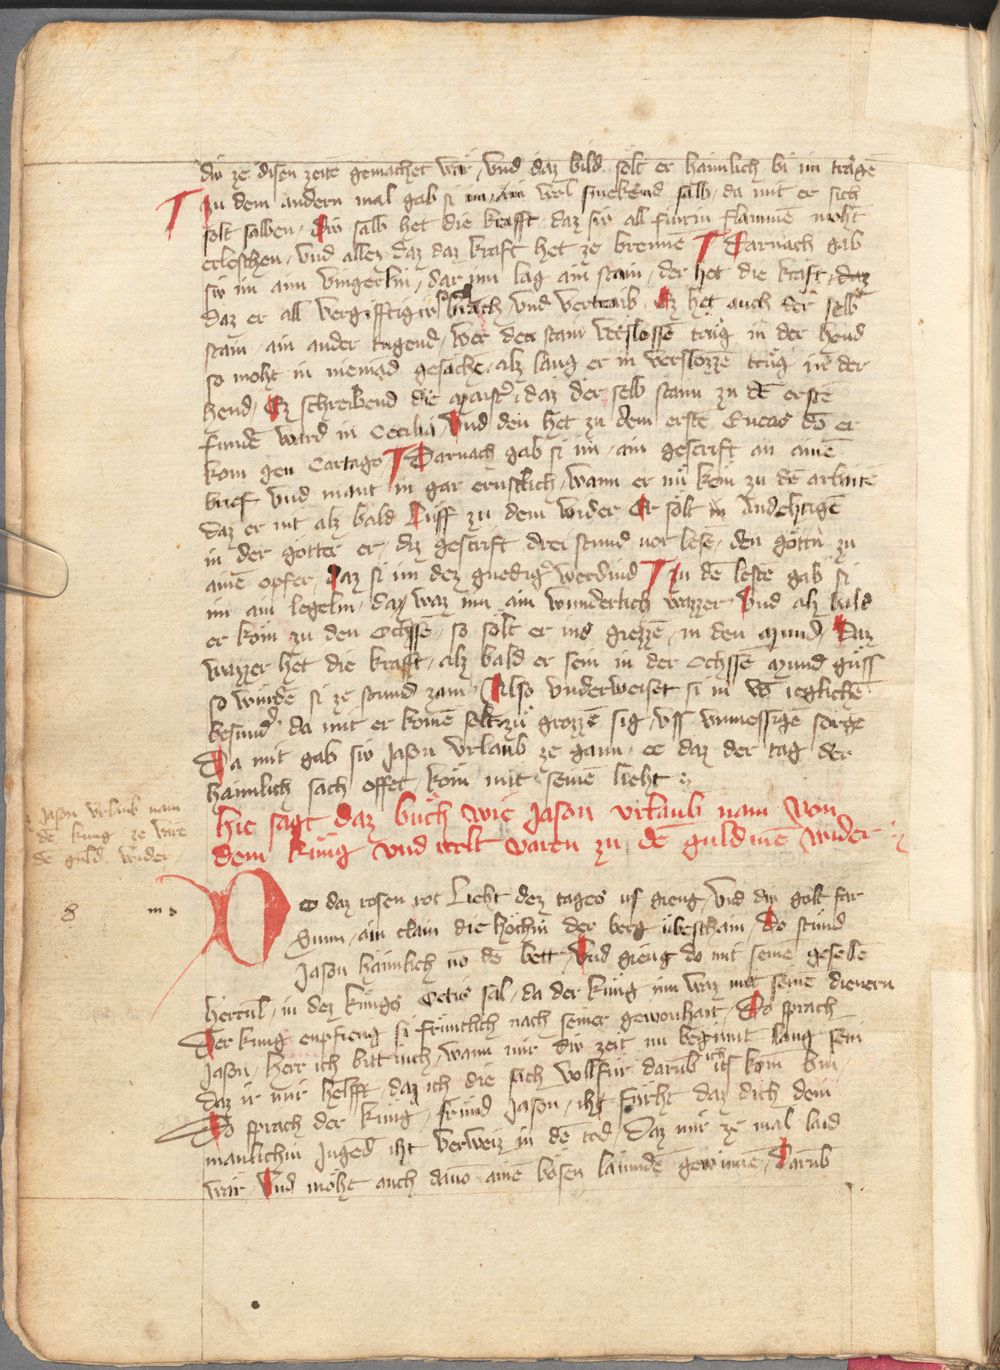 die ze disen zeite͂ gemachet wär / vnd daz bild solt er haimlich bi im trage͂
Zu dem andern mal gab si im ain wol smekend salb / da mit er sich
solt salben / Diw salb het die krafft / daz siw all fiurin flamme͂ moht
erleschen / vnd allez daz daz kraft het ze brenne͂ Darnach gab
siw im ain vingerlin / dar inn lag ain stain / der het die kraft / daz
daz er all vergifftigiw so brach / vnd vertraib / Ez het auch der selb
stain / ain ander tugend / wer den stain verslosse͂ trůg in der hend
so moht in niema͂d gesache͂ / alz lang er in verslozze͂ trůg in der
hend / Ez schreibend die maist͛ / daz der selb stain zu de͂ erste͂
funde͂ ward in Cecilia / Vnd den het zu dem erste͂ Eneas do er
kom gen Cartago Darnach gab si im / ain gescrift an aine͂
brief vnd mant in gar ernstlich / wann er nů köm zu de͂ arbaite͂
daz er nit alz bald luff zu dem wider Er solt in andehtige͂
in der götter er / diz gescrift drei stund vor lese͂ / den göttn̄ zu
aine͂ opfer / Daz si im dez gnedig͛ werdind Zu de͂ leste͂ gab si
im ain legelin / daz waz inn ain wunderlich wazzer Vnd alz bald
er köm zu den Ochsse͂ / so solt er ins giezze͂ / in den mund / Daz
wazzer het die krafft / alz bald er sein in der Ochsse͂ mund guss
so würde͂ si ze stund zam / Also vnderweiset si in vo͂ iegliche͂
besund͛ / da mit er kome͂ solt zů grozze͂ sig / vss vnmessige͂ sorge
Da mit gab siw Jason vrlaub ze gann / ee daz der tag der
haimlich sach offet köm mit seine͂ lieht
hie sagt daz bůch wie Jason vrlaub nam von
dem küng vnd wolt varen zu de͂ guldine͂ wider
Jason vrlaub nam
de͂ küng ze vare͂
de͂ guld͂ wider
Do daz rosen rot Lieht dez tages uf gieng / vnd diu golt far
Sunn / ain clain die höchin der berg übeschain / Do stůnd
Jason haimlich vo͂ de͂ bett / Vnd gieng do mit seine͂ geselle͂
hercul͛ / in dez küngs Oetis sal / da der küng inn waz mit seine͂ dienern
Der küng enpfieng si früntlich nach seiner gewonhait / Do sprach
Jason / herr ich bitt iuch / wann mir diw zeit nu beginnt lang sein
daz ir mir helfft / daz ich die sach vollfür darüb ich ietz kom bin /
Do sprach der küng / fründ Jason / ich fürht daz dich dein
manlichiu Juge͂d iht verweiz in de͂ tod / Daz mir ze mal laid
wär / Vnd möht auch dauo͂ aine͂ bösen läumde͂ gewinne͂ / Darüb